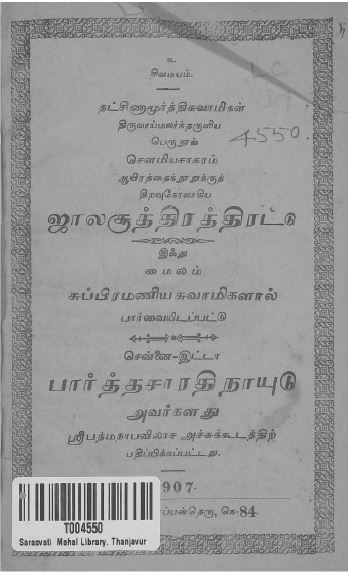 உ
சிவமயம்.
தட்சிணாமூர்த்திசுவாமிகள்
திருவாய்மலர்ந்தருளிய
பெருநூல்
சௌமியசாகரம்
ஆயிரத்தைந்நூறுக்குத்
திறவுகோலாகிய
ஜாலசூத்திரத்திரட்டு
இஃது
மைலம்
சுப்பிரமணியசுவாமிகளால்
பார்வையிடப்பட்டு
சென்னை-இட்டா
பார்த்தசாரதிநாயுடு
அவர்களது
ஸ்ரீபத்மநாபவிலாச அச்சுக்கூடத்திற்
பதிப்பிக்கப்பட்டது.
907.
ப்பன்தெரு, நெ-84.
4550
T004550
Sarasvati Mahal Library, Thanjavur